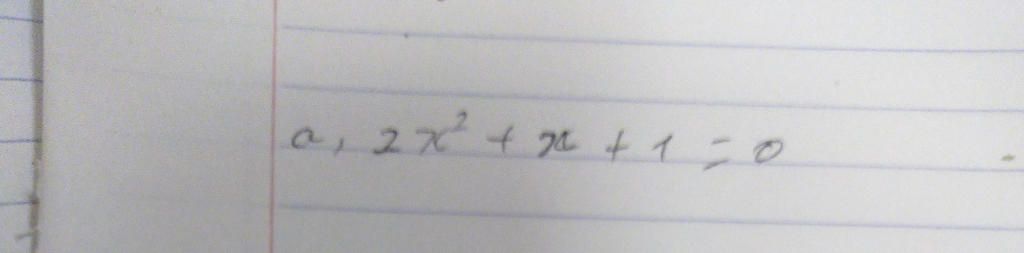 a, 2x² + x + 1 = 0